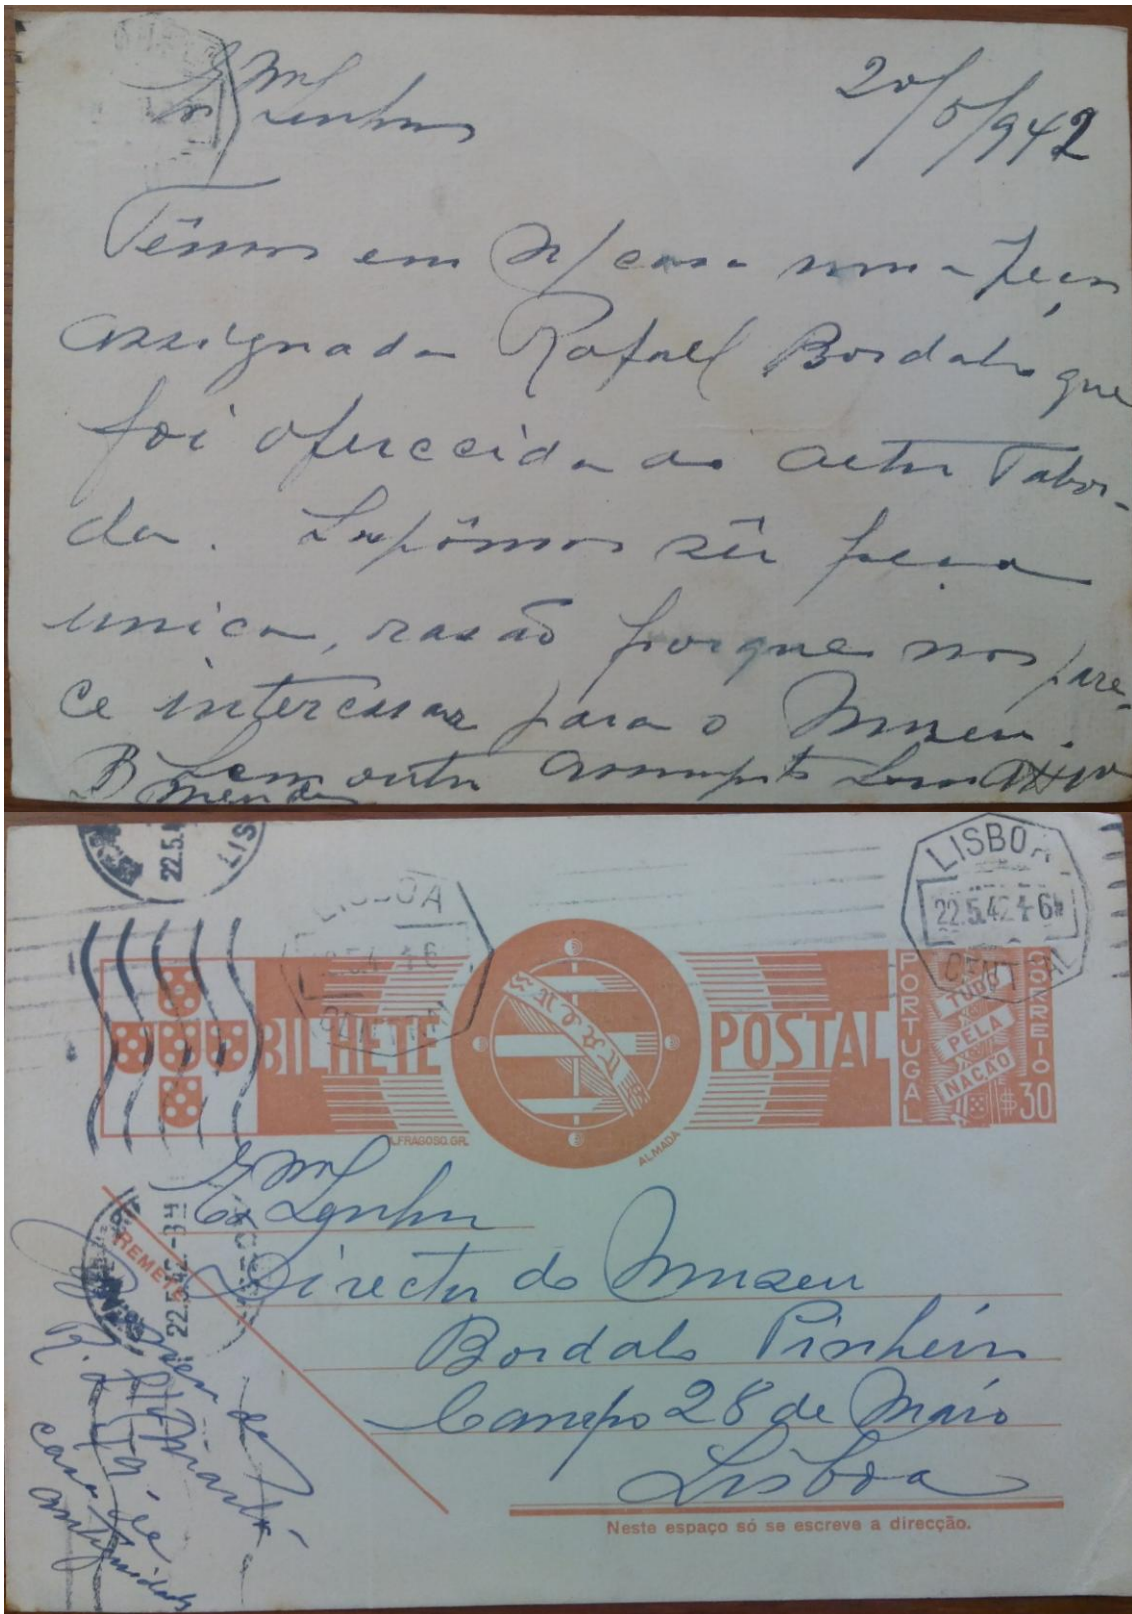 Ex.mo
Sr. Senhor
20/5/942
Têmos em N/ casa uma peça
assignada Rafael Bordalo, que
foi oferecida ao actor Tabor-
da. Supômos sêr peça
unica, rasão porque nos pare-
ce interessar para o Museu.
Sem outro assumpto somos
B Mendes
22.5.4
LIS
LISBOA
CENTRAL
LISBOA
22.5.42 4-6h
CENTRAL
BILHETE
POSTAL
PORTUGAL
CORREIO
TUDO
PELA
NAÇÃO
$30
L.FRAGOSO.GR.
ALMADA
Ex.mo
Senhor
REMETE
22.5.42.-3H
Director do Museu
Bordalo Pinheiro
Campo 28 de Maio
Lisboa
Neste espaço só se escreve a direcção.
R.
casa de
antiguidades